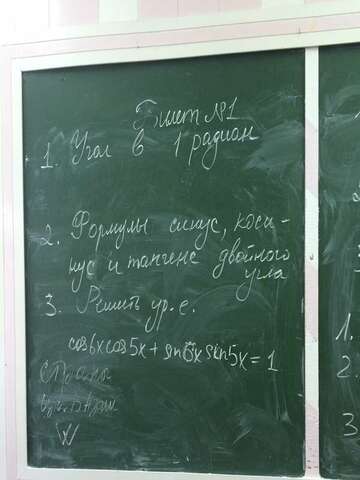 Билет №1
1. Угол в 1 радиан
2. Формулы синус, коси-
нус и тангенс двойного
угла
3. Решить ур.е.
cos6xcos5x + sin6xsin5x = 1